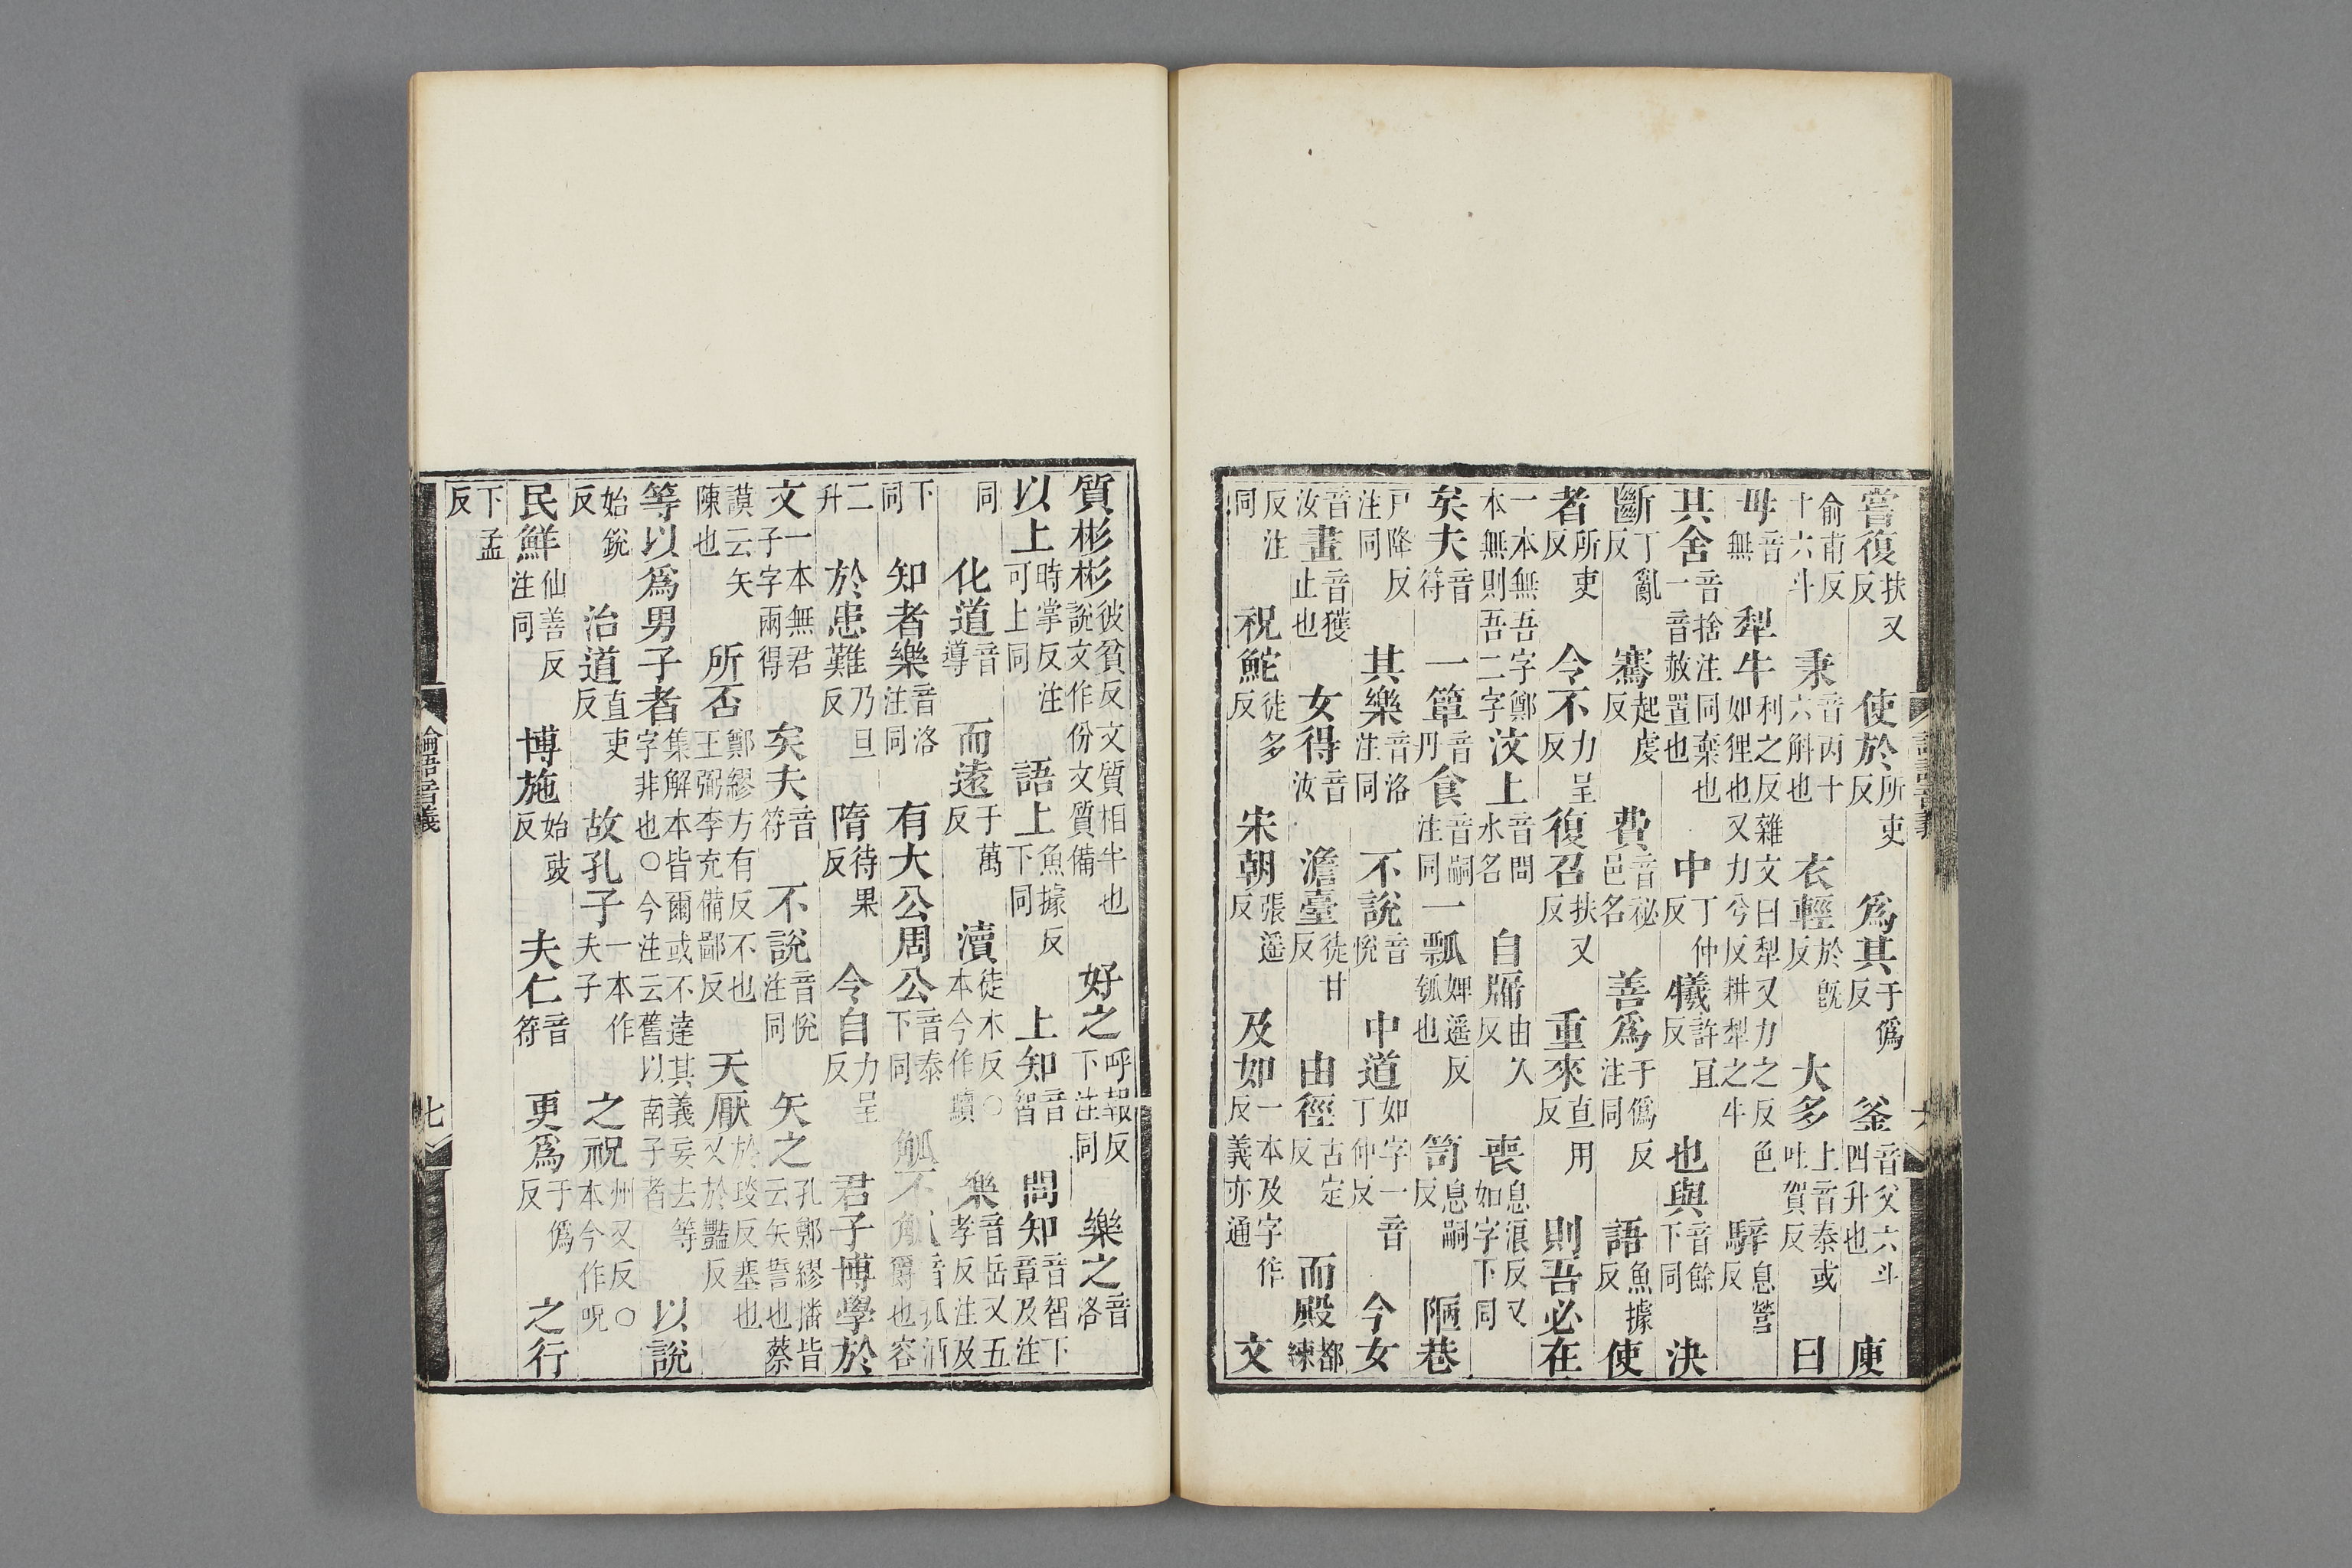 嘗復扶又反使於所吏反爲其于僞反釜音父六斗四升也庾
俞甫反十六斗秉音丙十六斛也衣輕於旣反大多上音泰或吐賀反曰
毋音無犁牛利之反雜文曰犁又力之反色如狸也又力兮反耕犁之牛騂息營反
其舍音捨注同棄也一音赦置也中丁仲反犧許宜反也與音餘下同決
斷丁亂反騫起虔反費音祕邑名善爲于僞反注同語魚據反使
者所吏反令不力呈反復召扶又反重來直用反則吾必在
一本無吾字鄭本無則吾二字汶上音問水名自牖由久反喪息浪反又如字下同
矣夫音符一簞音丹食音嗣注同一瓢婢遥反瓠也笥息嗣反陋巷
戸降反注同其樂音洛注同不說音悅中道如字一音丁仲反今女
音汝畫音獲止也女得音汝澹臺徒甘反由徑古定反而殿都練
反注同祝鮀徒多反宋朝張遥反及如一本及字作反義亦通文
質彬彬彼貧反文質相半也說文作份文質備好之呼報反下注同樂之音洛
以上時掌反注可上同語上魚據反下同上知音智問知音智下章及注
同化道音導而遠于萬反瀆徒木反○本今作黷樂音岳又五孝反注及
下同知者樂音洛注同有大公周公音泰下同觚不觚音孤酒爵也容
二升於患難乃旦反隋待果反令自力呈反君子博學於
文一本無君子字兩得矣夫音符不說音悅注同矢之孔鄭繆播皆云矢誓也蔡
謨云矢陳也所否鄭繆方有反不也王弼李充備鄙反天厭於琰反塞也又於豔反以說
等以爲男子者集解本皆爾或不達其義妄去等字非也○今注云舊以南子者
始銳反治道直吏反故孔子一本作夫子之祝州又反○本今作呪
民鮮仙善反注同博施始豉反夫仁音符更爲于僞反之行
下孟反
論語音義 七